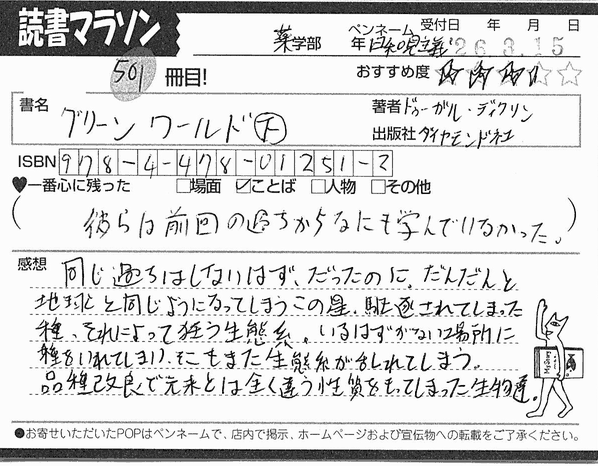 読書マラソン
薬学部 年 ペンネーム 日和見主義 受付日 年 月 日
26.3.15
501冊目!
おすすめ度 ★★★☆☆
書名 グリーンワールド(下)
著者 ドゥーガル・ディクソン
出版社 ダイヤモンド社
ISBN 978-4-478-01251-2
♥一番心に残った □場面 ☑ことば □人物 □その他
(彼らは前回の過ちからなにも学んでいなかった。)
感想
同じ過ちはしないはず、だったのに。だんだんと
地球と同じようになってしまうこの星。駆逐されてしまった
種、それによって狂う生態系。いるはずがない場所に
種をいれてしまい、そこもまた生態系が乱れてしまう。
品種改良で元来とは全く違う性質をもってしまった生物達。
●お寄せいただいたPOPはペンネームで、店内で掲示、ホームページおよび宣伝物への転載をご了承ください。